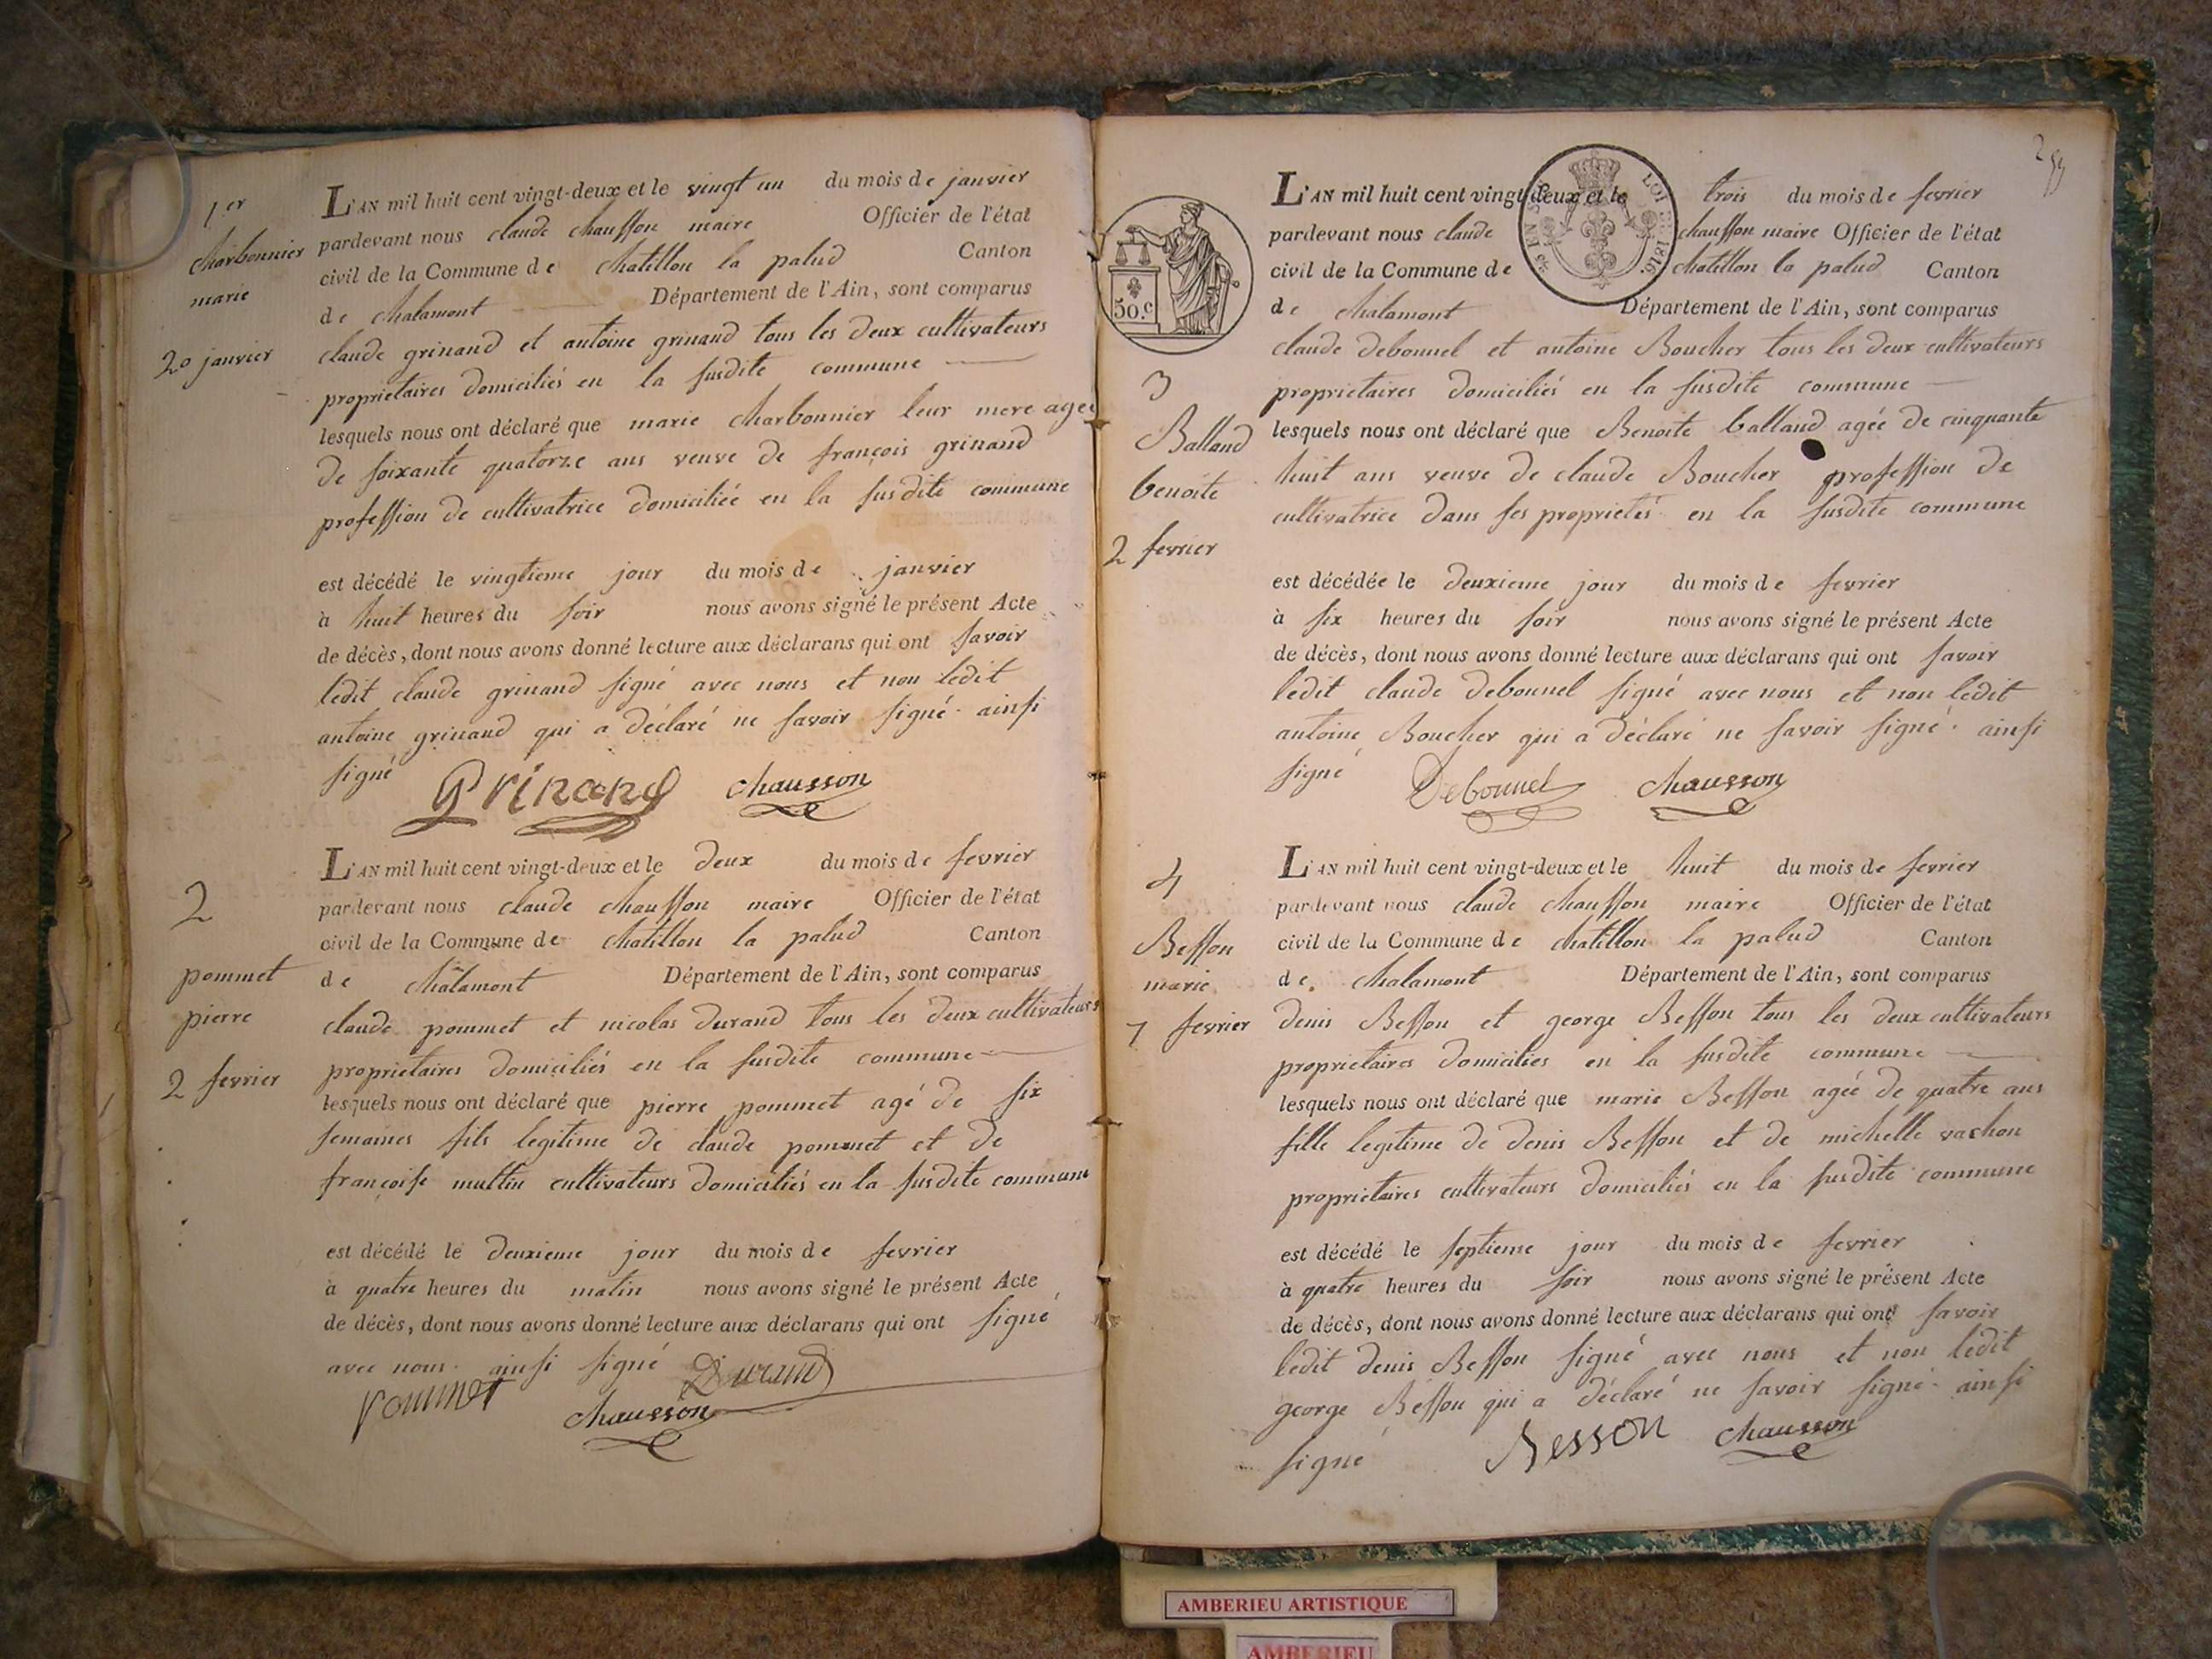 1.er
charbonnier
marie
20 janvier
L'AN mil huit cent vingt-deux et le vingt un du mois de janvier
pardevant nous claude chausson maire Officier de l'état
civil de la Commune de chatillon la palud Canton
de chalamont Département de l'Ain, sont comparus
claude grinand et antoine grinand tous les deux cultivateurs
proprietaires domiciliés en la susdite commune
lesquels nous ont déclaré que marie charbonnier leur mere agée
de soixante quatorze ans veuve de françois grinand
profession de cultivatrice domiciliée en la susdite commune
est décédé le vingtieme jour du mois de janvier
à huit heures du soir nous avons signé le présent Acte
de décès, dont nous avons donné lecture aux déclarans qui ont savoir
ledit claude grinand signé avec nous et non ledit
antoine grinand qui a déclaré ne savoir signé. ainsi
signé
Grinand chausson
2
pommet
pierre
2 fevrier
L'AN mil huit cent vingt-deux et le deux du mois de fevrier
pardevant nous claude chausson maire Officier de l'état
civil de la Commune de chatillon la palud Canton
de châlamont Département de l'Ain, sont comparus
claude pommet et nicolas durand tous les deux cultivateurs
proprietaires domiciliés en la susdite commune
lesquels nous ont déclaré que pierre pommet agé de six
semaines fils legitime de claude pommet et de
françoise multin cultivateurs domiciliés en la susdite commune
est décédé le deuxieme jour du mois de fevrier
à quatre heures du matin nous avons signé le présent Acte
de décès, dont nous avons donné lecture aux déclarans qui ont signé
avec nous. ainsi signé Durand
Pommet
chausson
LOI DE 1816
50.c
3
Balland
benoite
2 fevrier
L'AN mil huit cent vingt-deux et le trois du mois de fevrier
pardevant nous claude chausson maire Officier de l'état
civil de la Commune de chatillon la palud Canton
de chalamont Département de l'Ain, sont comparus
claude debonnel et antoine Boucher tous les deux cultivateurs
proprietaires domiciliés en la susdite commune
lesquels nous ont déclaré que Benoite balland agée de cinquante
huit ans veuve de claude Boucher profession de
cultivatrice dans ses proprietés en la susdite commune
est décédée le deuxieme jour du mois de fevrier
à six heures du soir nous avons signé le présent Acte
de décès, dont nous avons donné lecture aux déclarans qui ont savoir
ledit claude debonnel signé avec nous et non ledit
antoine Boucher qui a déclaré ne savoir signé. ainsi
signé
Debonnel chausson
4
Besson
marie
7 fevrier
L'AN mil huit cent vingt-deux et le huit du mois de fevrier
pardevant nous claude chausson maire Officier de l'état
civil de la Commune de chatillon la palud Canton
de chalamont Département de l'Ain, sont comparus
denis Besson et george Besson tous les deux cultivateurs
proprietaires domiciliés en la susdite commune
lesquels nous ont déclaré que marie Besson agée de quatre ans
fille legitime de denis Besson et de michelle vachon
proprietaires cultivateurs domiciliés en la susdite commune
est décédé le septieme jour du mois de fevrier
à quatre heures du soir nous avons signé le présent Acte
de décès, dont nous avons donné lecture aux déclarans qui ont savoir
ledit denis Besson signé avec nous et non ledit
george Besson qui a déclaré ne savoir signé. ainsi
signé
Besson chausson
AMBERIEU ARTISTIQUE
AMBERIEU